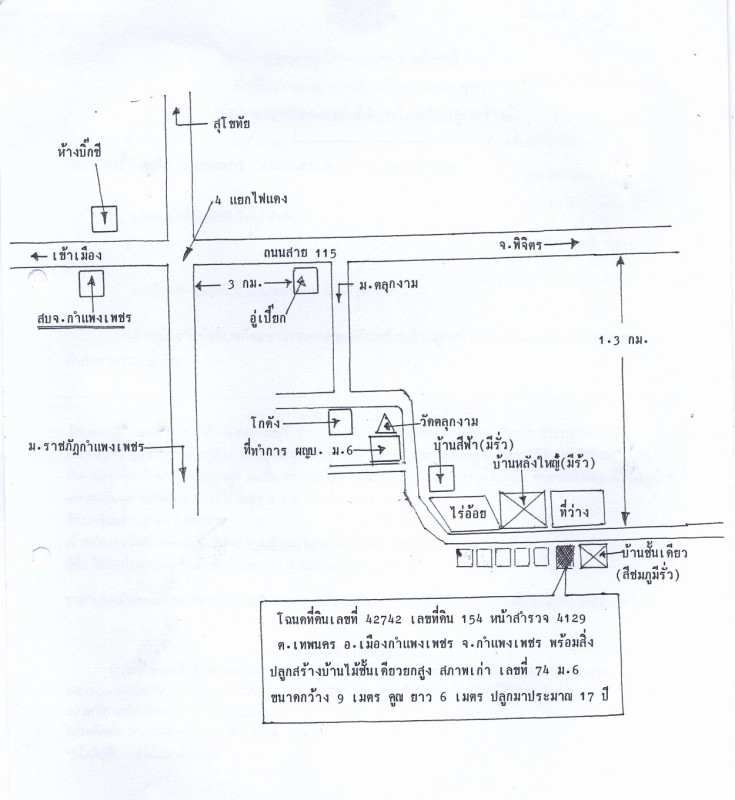 สุโขทัย
ห้างบิ๊กซี
4 แยกไฟแดง
เข้าเมือง
ถนนสาย 115
จ.พิจิตร
3 กม.
ม.ตลุกงาม
สบจ.กำแพงเพชร
อู่เปี๊ยก
1.3 กม.
โกดัง
วัดตลุกงาม
ม.ราชภัฏกำแพงเพชร
ที่ทำการ ผญบ. ม.6
บ้านสีฟ้า(มีรั่ว)
บ้านหลังใหญ่(มีรั้ว)
ไร่อ้อย
ที่ว่าง
บ้านชั้นเดียว
(สีชมภูมีรั่ว)
โฉนดที่ดินเลขที่ 42742 เลขที่ดิน 154 หน้าสำรวจ 4129
ต.เทพนคร อ.เมืองกำแพงเพชร จ.กำแพงเพชร พร้อมสิ่ง
ปลูกสร้างบ้านไม้ชั้นเดียวยกสูง สภาพเก่า เลขที่ 74 ม.6
ขนาดกว้าง 9 เมตร คูณ ยาว 6 เมตร ปลูกมาประมาณ 17 ปี